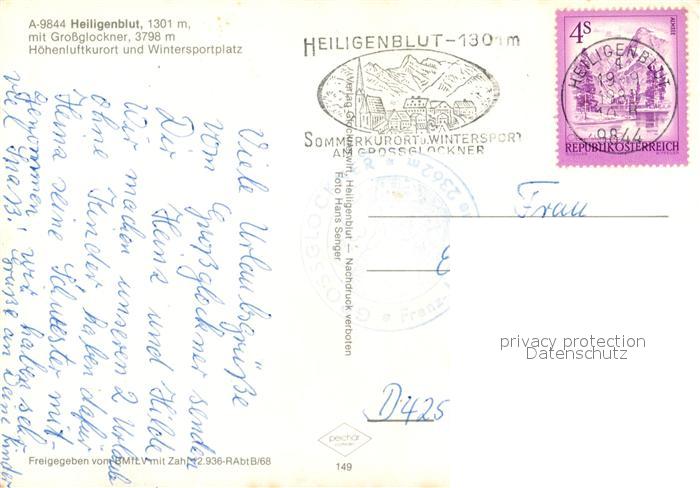 A-9844 Heiligenblut, 1301 m,
mit Großglockner, 3798 m
Höhenluftkurort und Wintersportplatz
Viele Urlaubsgrüße
vom Großglockner senden
Dir Heinz und Hilde
Wir machen unseren 2. Urlaub
ohne Kinder haben dafür
Heinz seine Schwester mit-
genommen. wir haben sehr
viel Spaß.
Grüße an Deine Kinder
Freigegeben vom BMfLV mit Zahl 12.936-RAbtB/68
HEILIGENBLUT-1301m
SOMMERKURORT u. WINTERSPORT
AM GROSSGLOCKNER
4S
ALMSEE
REPUBLIK ÖSTERREICH
HEILIGENBLUT
9844
Heiligenblut – Nachdruck verboten
Foto Hans Senger
GROSSGLOCK
2362 m
Franz-
Frau
D 425
peichär
149
privacy protection
Datenschutz